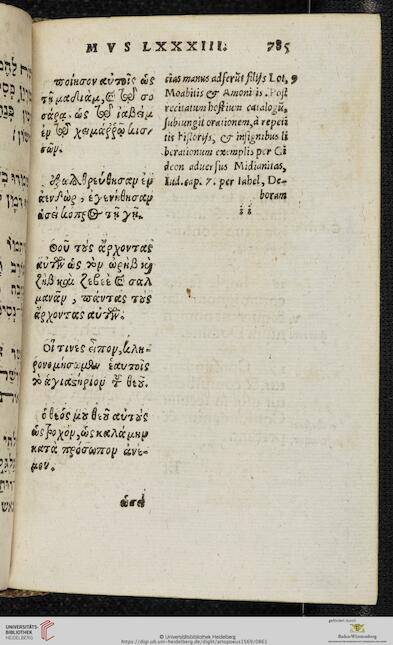 MVS LXXXIII. 785
ποίησον αὐτοῖς ὡς
τῇ μαδιὰμ, καὶ τῷ σο
σάρα. ὡς τῷ ἰαβεὶμ
ἐν τῷ χειμάῤῥῳ κισ/
σῶν.
Ἐξωλοθρεύθησαν ἐν
ἀενδὼρ, ἐγενήθησαν
ὡσεὶ κοπρος τῇ γῇ.
Θοῦ τοὺς ἄρχοντας
αὐτῶν ὡς τὸν ὠρὴβ καὶ
ζὴβ καὶ ζεβεὲ καὶ σαλ
μανὰν, πάντας τοὺς
ἄρχοντας αὐτῶν.
Οἵτινες εἶπον, κλη-
ρονομήσωμεν ἑαυτοῖς
τὸ ἁγιαστήριον τοῦ θεοῦ.
ὁ θεός μου θοῦ αὐτοὺς
ὡς τροχὸν, ὡς καλάμην
κατὰ πρόσωπον ἀνέ-
μου.
ὡσεὶ
cias manus adferūt filijs Lot,
Moabitis & Amonitis. Post
recitatum hostium catalogū,
subiungit orationem, à repeti
tis historijs, & insignibus li
berationum exemplis per Gi
deon aduersus Midianitas,
Iud. cap. 7. per Iahel, De-
boram
UNIVERSITÄTS-
BIBLIOTHEK
HEIDELBERG
© Universitätsbibliothek Heidelberg
https://digi.ub.uni-heidelberg.de/diglit/artopoeus1569/0861
gefördert durch
Baden-Württemberg